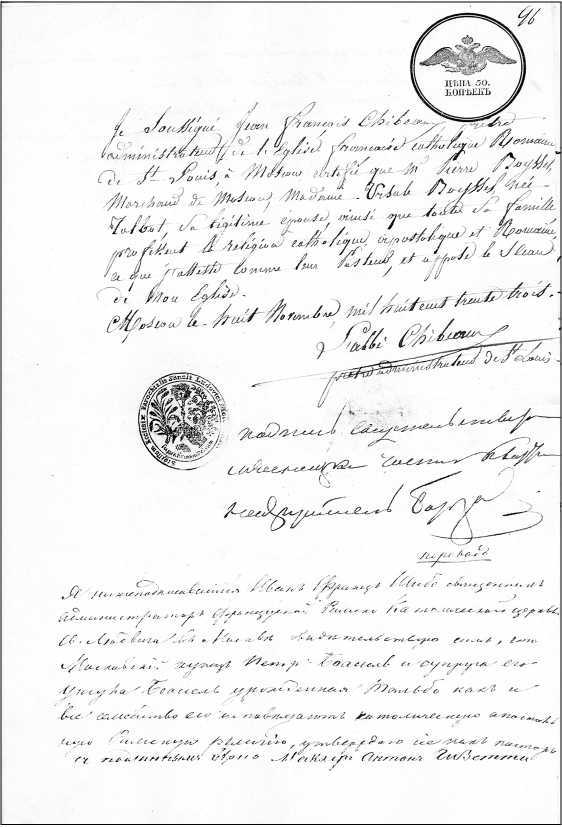 96
ЦѢНА 50.
КОПѢЕКЪ
Je Soussigné, Jean François Chibeaux, prêtre
administrateur de l'Eglise française catholique Romaine
de St Louis, à Moscou certifie que Mr Pierre Boyssel,
Marchand de Moscou, Madame Ursule Boyssel, née
Talbot, sa légitime épouse, ainsi que toute sa famille
professent la religion catholique, apostolique et Romaine,
ce que j'atteste comme leur Pasteur, et appose le Sceau
de mon Eglise.
Moscou le huit Novembre, mil huit cent trente trois.
L'abbé Chibeaux
prêtre administrateur de St Louis
подпись свидетельствую
части
надзиратель
переводъ
Я нижеподписавшійся Иванъ Францъ Шибо священникъ
администраторъ Французской Римско Католической церкви
Св. Людовика въ Москвѣ свидѣтельствую симъ, что
Московскій купецъ Петръ Боассель и супруга его
Урсула Боассель урожденная Тальбо какъ и
все семейство его исповѣдуютъ католическую апостоль
скую Римскую религію, утверждаю сіе какъ пасторъ
съ подлиннымъ вѣрно Маклеръ Антонъ